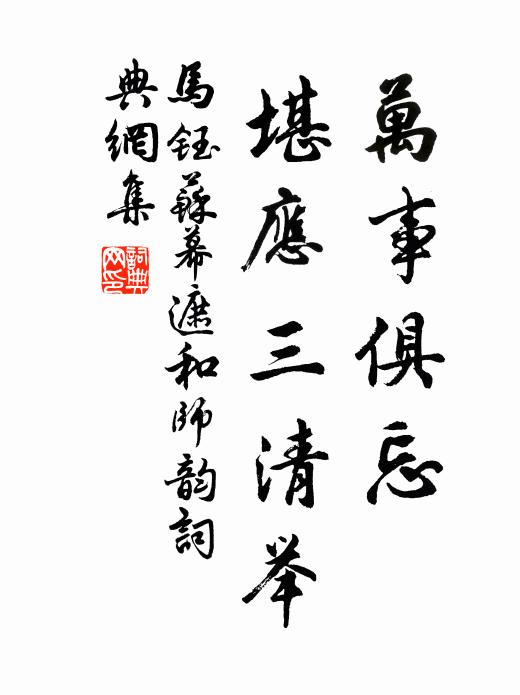 萬事俱忘
堪應三清举
馬鈺蘇幕遮和師韵詞
典網集
詞典
网印